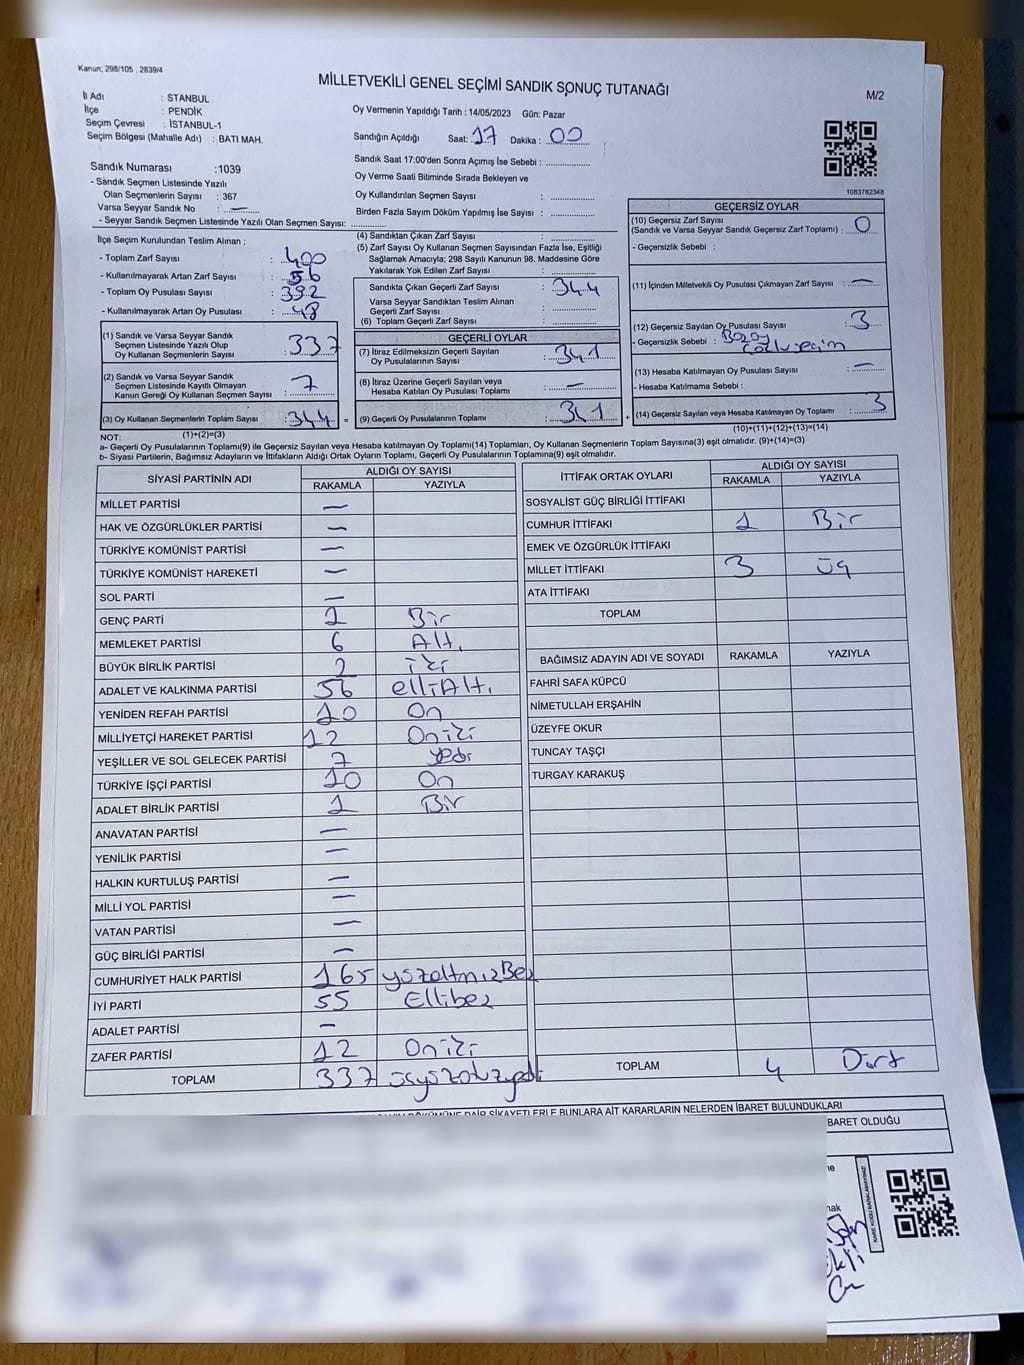 Kanun; 298/105 , 2839/4
MİLLETVEKİLİ GENEL SEÇİMİ SANDIK SONUÇ TUTANAĞI
M/2
İl Adı : İSTANBUL
İlçe : PENDİK
Seçim Çevresi : İSTANBUL-1
Seçim Bölgesi (Mahalle Adı) : BATI MAH.
Oy Vermenin Yapıldığı Tarih : 14/05/2023 Gün: Pazar
Sandığın Açıldığı Saat: 17 Dakika : 00
Sandık Saat 17:00'den Sonra Açımış İse Sebebi :
Oy Verme Saati Bitiminde Sırada Bekleyen ve
Oy Kullandırılan Seçmen Sayısı :
Birden Fazla Sayım Döküm Yapılmış İse Sayısı :
1083782348
Sandık Numarası :1039
- Sandık Seçmen Listesinde Yazılı
Olan Seçmenlerin Sayısı : 367
Varsa Seyyar Sandık No : —
- Seyyar Sandık Seçmen Listesinde Yazılı Olan Seçmen Sayısı:
İlçe Seçim Kurulundan Teslim Alınan ;
- Toplam Zarf Sayısı : 400
- Kullanılmayarak Artan Zarf Sayısı : 56
- Toplam Oy Pusulası Sayısı : 392
- Kullanılmayarak Artan Oy Pusulası : 48
(1) Sandık ve Varsa Seyyar Sandık
Seçmen Listesinde Yazılı Olup
Oy Kullanan Seçmenlerin Sayısı : 337
(2) Sandık ve Varsa Seyyar Sandık
Seçmen Listesinde Kayıtlı Olmayan
Kanun Gereği Oy Kullanan Seçmen Sayısı : 7
(3) Oy Kullanan Seçmenlerin Toplam Sayısı : 344 =
(1)+(2)=(3)
(4) Sandıktan Çıkan Zarf Sayısı :
(5) Zarf Sayısı Oy Kullanan Seçmen Sayısından Fazla İse, Eşitliği
Sağlamak Amacıyla; 298 Sayılı Kanunun 98. Maddesine Göre
Yakılarak Yok Edilen Zarf Sayısı :
Sandıkta Çıkan Geçerli Zarf Sayısı : 344
Varsa Seyyar Sandıktan Teslim Alınan
Geçerli Zarf Sayısı :
(6) Toplam Geçerli Zarf Sayısı :
GEÇERLİ OYLAR
(7) İtiraz Edilmeksizin Geçerli Sayılan
Oy Pusulalarının Sayısı : 341
(8) İtiraz Üzerine Geçerli Sayılan veya
Hesaba Katılan Oy Pusulası Toplamı : —
(9) Geçerli Oy Pusulalarının Toplamı : 341 +
GEÇERSİZ OYLAR
(10) Geçersiz Zarf Sayısı
(Sandık ve Varsa Seyyar Sandık Geçersiz Zarf Toplamı) : 0
- Geçersizlik Sebebi :
(11) İçinden Milletvekili Oy Pusulası Çıkmayan Zarf Sayısı : —
(12) Geçersiz Sayılan Oy Pusulası Sayısı : 3
- Geçersizlik Sebebi :
(13) Hesaba Katılmayan Oy Pusulası Sayısı : —
- Hesaba Katılmama Sebebi :
(14) Geçersiz Sayılan veya Hesaba Katılmayan Oy Toplamı : 3
(10)+(11)+(12)+(13)=(14)
NOT:
a- Geçerli Oy Pusulalarının Toplamı(9) ile Geçersiz Sayılan veya Hesaba katılmayan Oy Toplamı(14) Toplamları, Oy Kullanan Seçmenlerin Toplam Sayısına(3) eşit olmalıdır. (9)+(14)=(3)
b- Siyasi Partilerin, Bağımsız Adayların ve İttifakların Aldığı Ortak Oyların Toplamı, Geçerli Oy Pusulalarının Toplamına(9) eşit olmalıdır.
SİYASİ PARTİNİN ADI ALDIĞI OY SAYISI
RAKAMLA YAZIYLA
MİLLET PARTİSİ —
HAK VE ÖZGÜRLÜKLER PARTİSİ —
TÜRKİYE KOMÜNİST PARTİSİ —
TÜRKİYE KOMÜNİST HAREKETİ —
SOL PARTİ —
GENÇ PARTİ 1 Bir
MEMLEKET PARTİSİ 6 Altı
BÜYÜK BİRLİK PARTİSİ 2 iki
ADALET VE KALKINMA PARTİSİ 56 elliAltı
YENİDEN REFAH PARTİSİ 10 On
MİLLİYETÇİ HAREKET PARTİSİ 12 Oniki
YEŞİLLER VE SOL GELECEK PARTİSİ 7 Yedi
TÜRKİYE İŞÇİ PARTİSİ 10 On
ADALET BİRLİK PARTİSİ 1 Bir
ANAVATAN PARTİSİ —
YENİLİK PARTİSİ —
HALKIN KURTULUŞ PARTİSİ —
MİLLİ YOL PARTİSİ —
VATAN PARTİSİ —
GÜÇ BİRLİĞİ PARTİSİ —
CUMHURİYET HALK PARTİSİ 165 yüzaltmışBeş
İYİ PARTİ 55 Ellibeş
ADALET PARTİSİ —
ZAFER PARTİSİ 12 Oniki
TOPLAM 337 üçyüzotuzyedi
İTTİFAK ORTAK OYLARI ALDIĞI OY SAYISI
RAKAMLA YAZIYLA
SOSYALİST GÜÇ BİRLİĞİ İTTİFAKI
CUMHUR İTTİFAKI 1 Bir
EMEK VE ÖZGÜRLÜK İTTİFAKI
MİLLET İTTİFAKI 3 üç
ATA İTTİFAKI
TOPLAM
BAĞIMSIZ ADAYIN ADI VE SOYADI RAKAMLA YAZIYLA
FAHRİ SAFA KÜPCÜ
NİMETULLAH ERŞAHİN
ÜZEYFE OKUR
TUNCAY TAŞÇI
TURGAY KARAKUŞ
TOPLAM 4 Dört
DÖKÜMÜNE DAİR ŞİKAYETLERLE BUNLARA AİT KARARLARIN NELERDEN İBARET BULUNDUKLARI
BARET OLDUĞU
ne
nak
KARE KODU KARALAMAYINIZ!